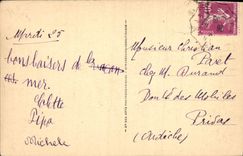 Mardi 25
bons baisers de la
mer.
Colette
Pépa
Michele
Monsieur Christian
Pivet
chez M. Durand
Route des Mobiles
Privas
(Ardèche)